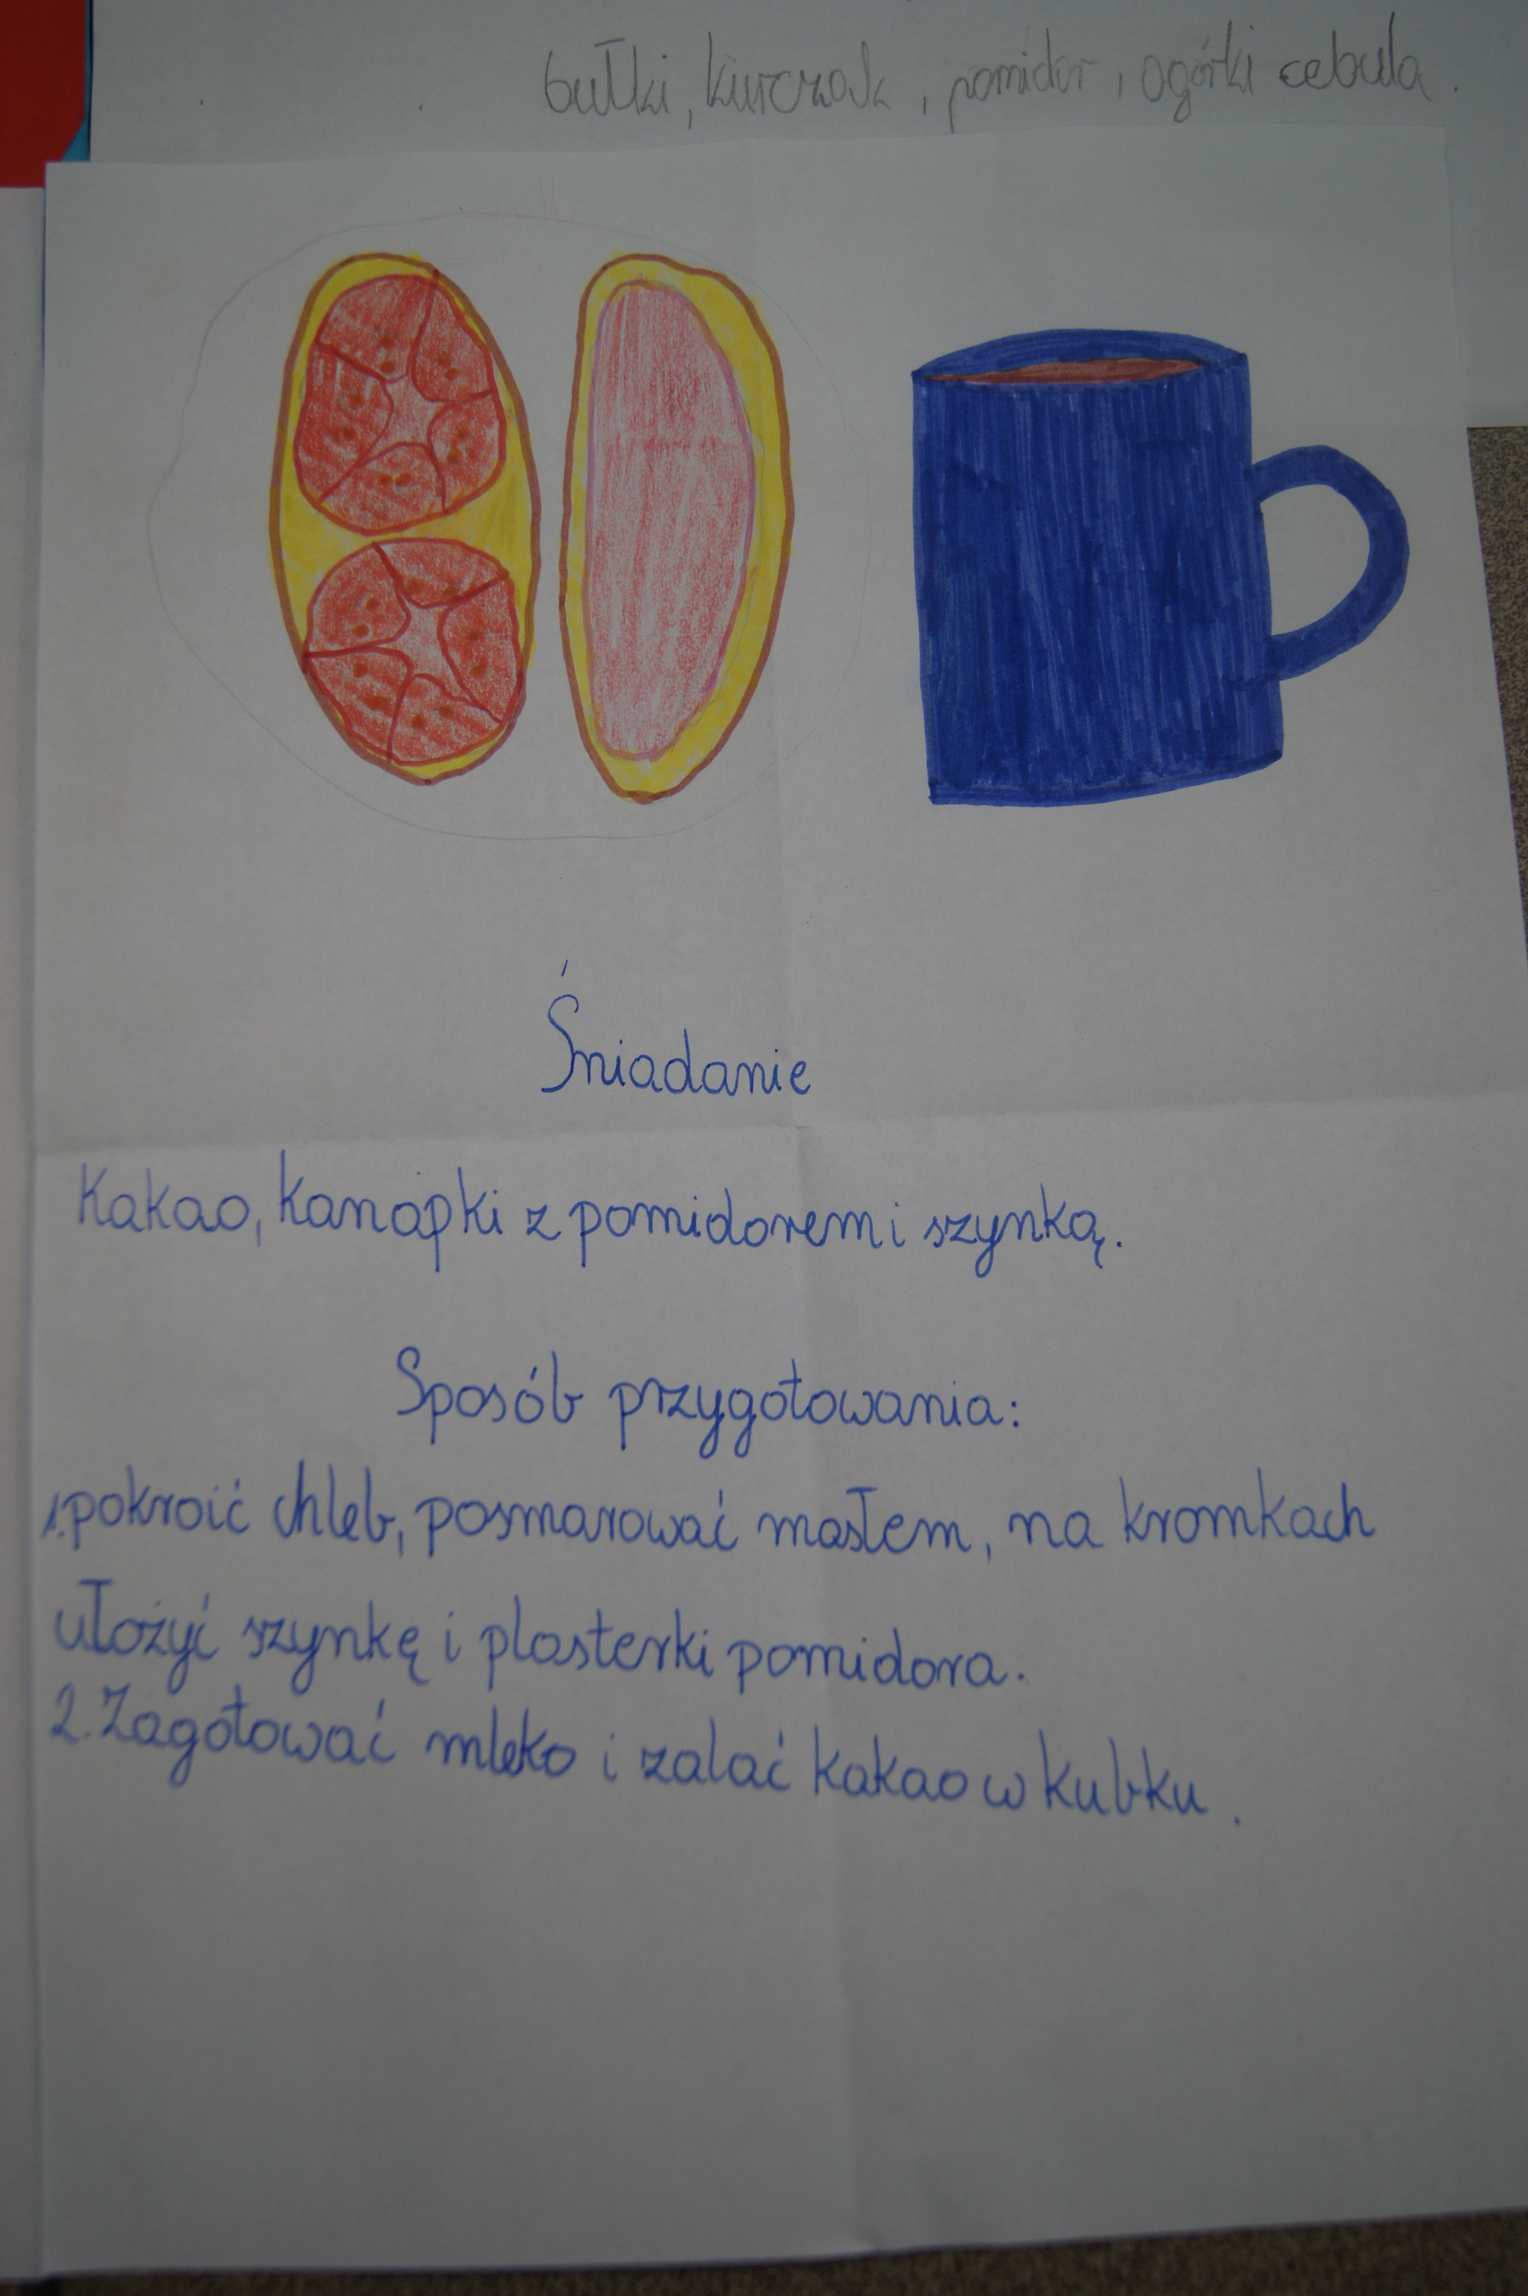 bułki, kurczak, pomidor, ogórki cebula.
Śniadanie
Kakao, kanapki z pomidorem i szynką.
Sposób przygotowania:
1. pokroić chleb, posmarować masłem, na kromkach
ułożyć szynkę i plasterki pomidora.
2. Zagotować mleko i zalać kakao w kubku.